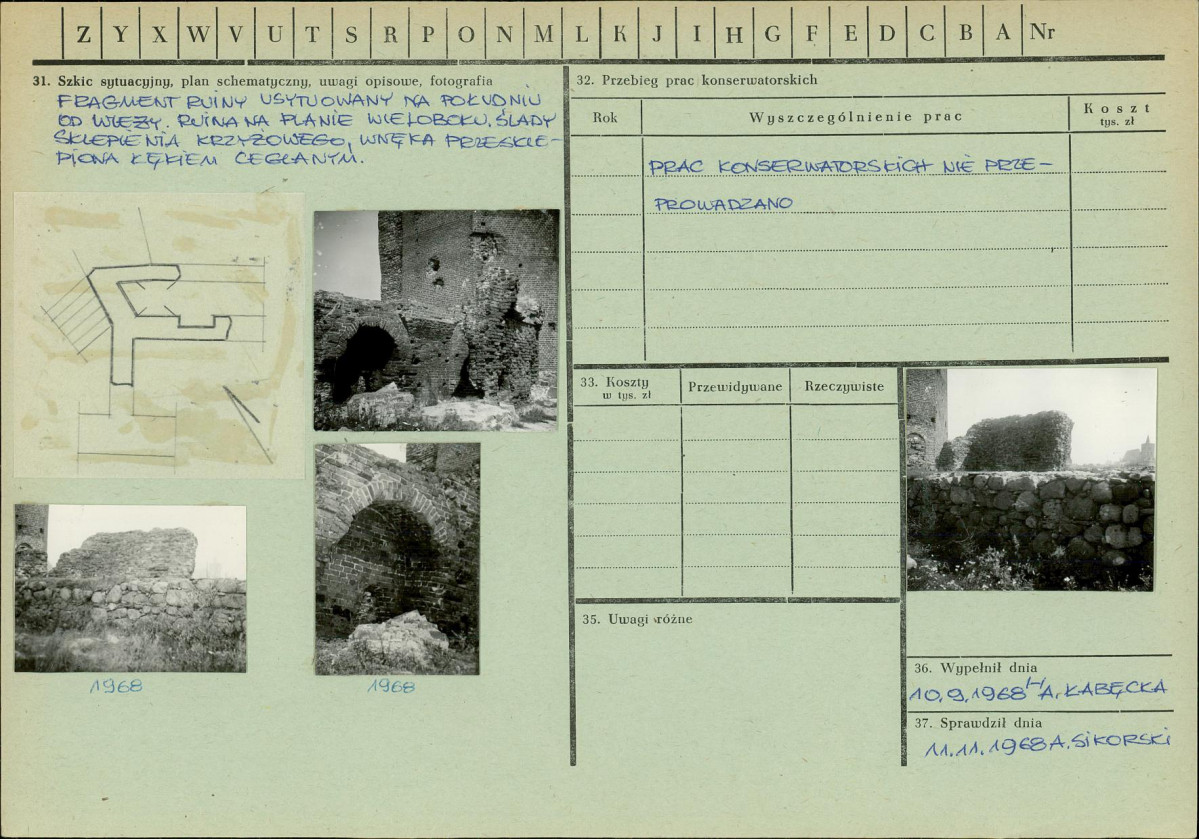 Z Y X W V U T S R P O N M L K J I H G F E D C B A Nr
31. Szkic sytuacyjny, plan schematyczny, uwagi opisowe, fotografia
FRAGMENT RUINY USYTUOWANY NA POŁUDNIU
OD WIEŻY. RUINA NA PLANIE WIELOBOKU. ŚLADY
SKLEPIENIA KRZYŻOWEGO, WNĘKA PRZESKLE-
PIONA ŁĘKIEM CEGLANYM.
1968
1968
32. Przebieg prac konserwatorskich
Rok
Wyszczególnienie prac
Koszt
tys. zł
PRAC KONSERWATORSKICH NIE PRZE-
PROWADZANO
33. Koszty
w tys. zł
Przewidywane
Rzeczywiste
35. Uwagi różne
36. Wypełnił dnia
10.9.1968 A. ŁABĘCKA
37. Sprawdził dnia
11.11.1968 A. SIKORSKI